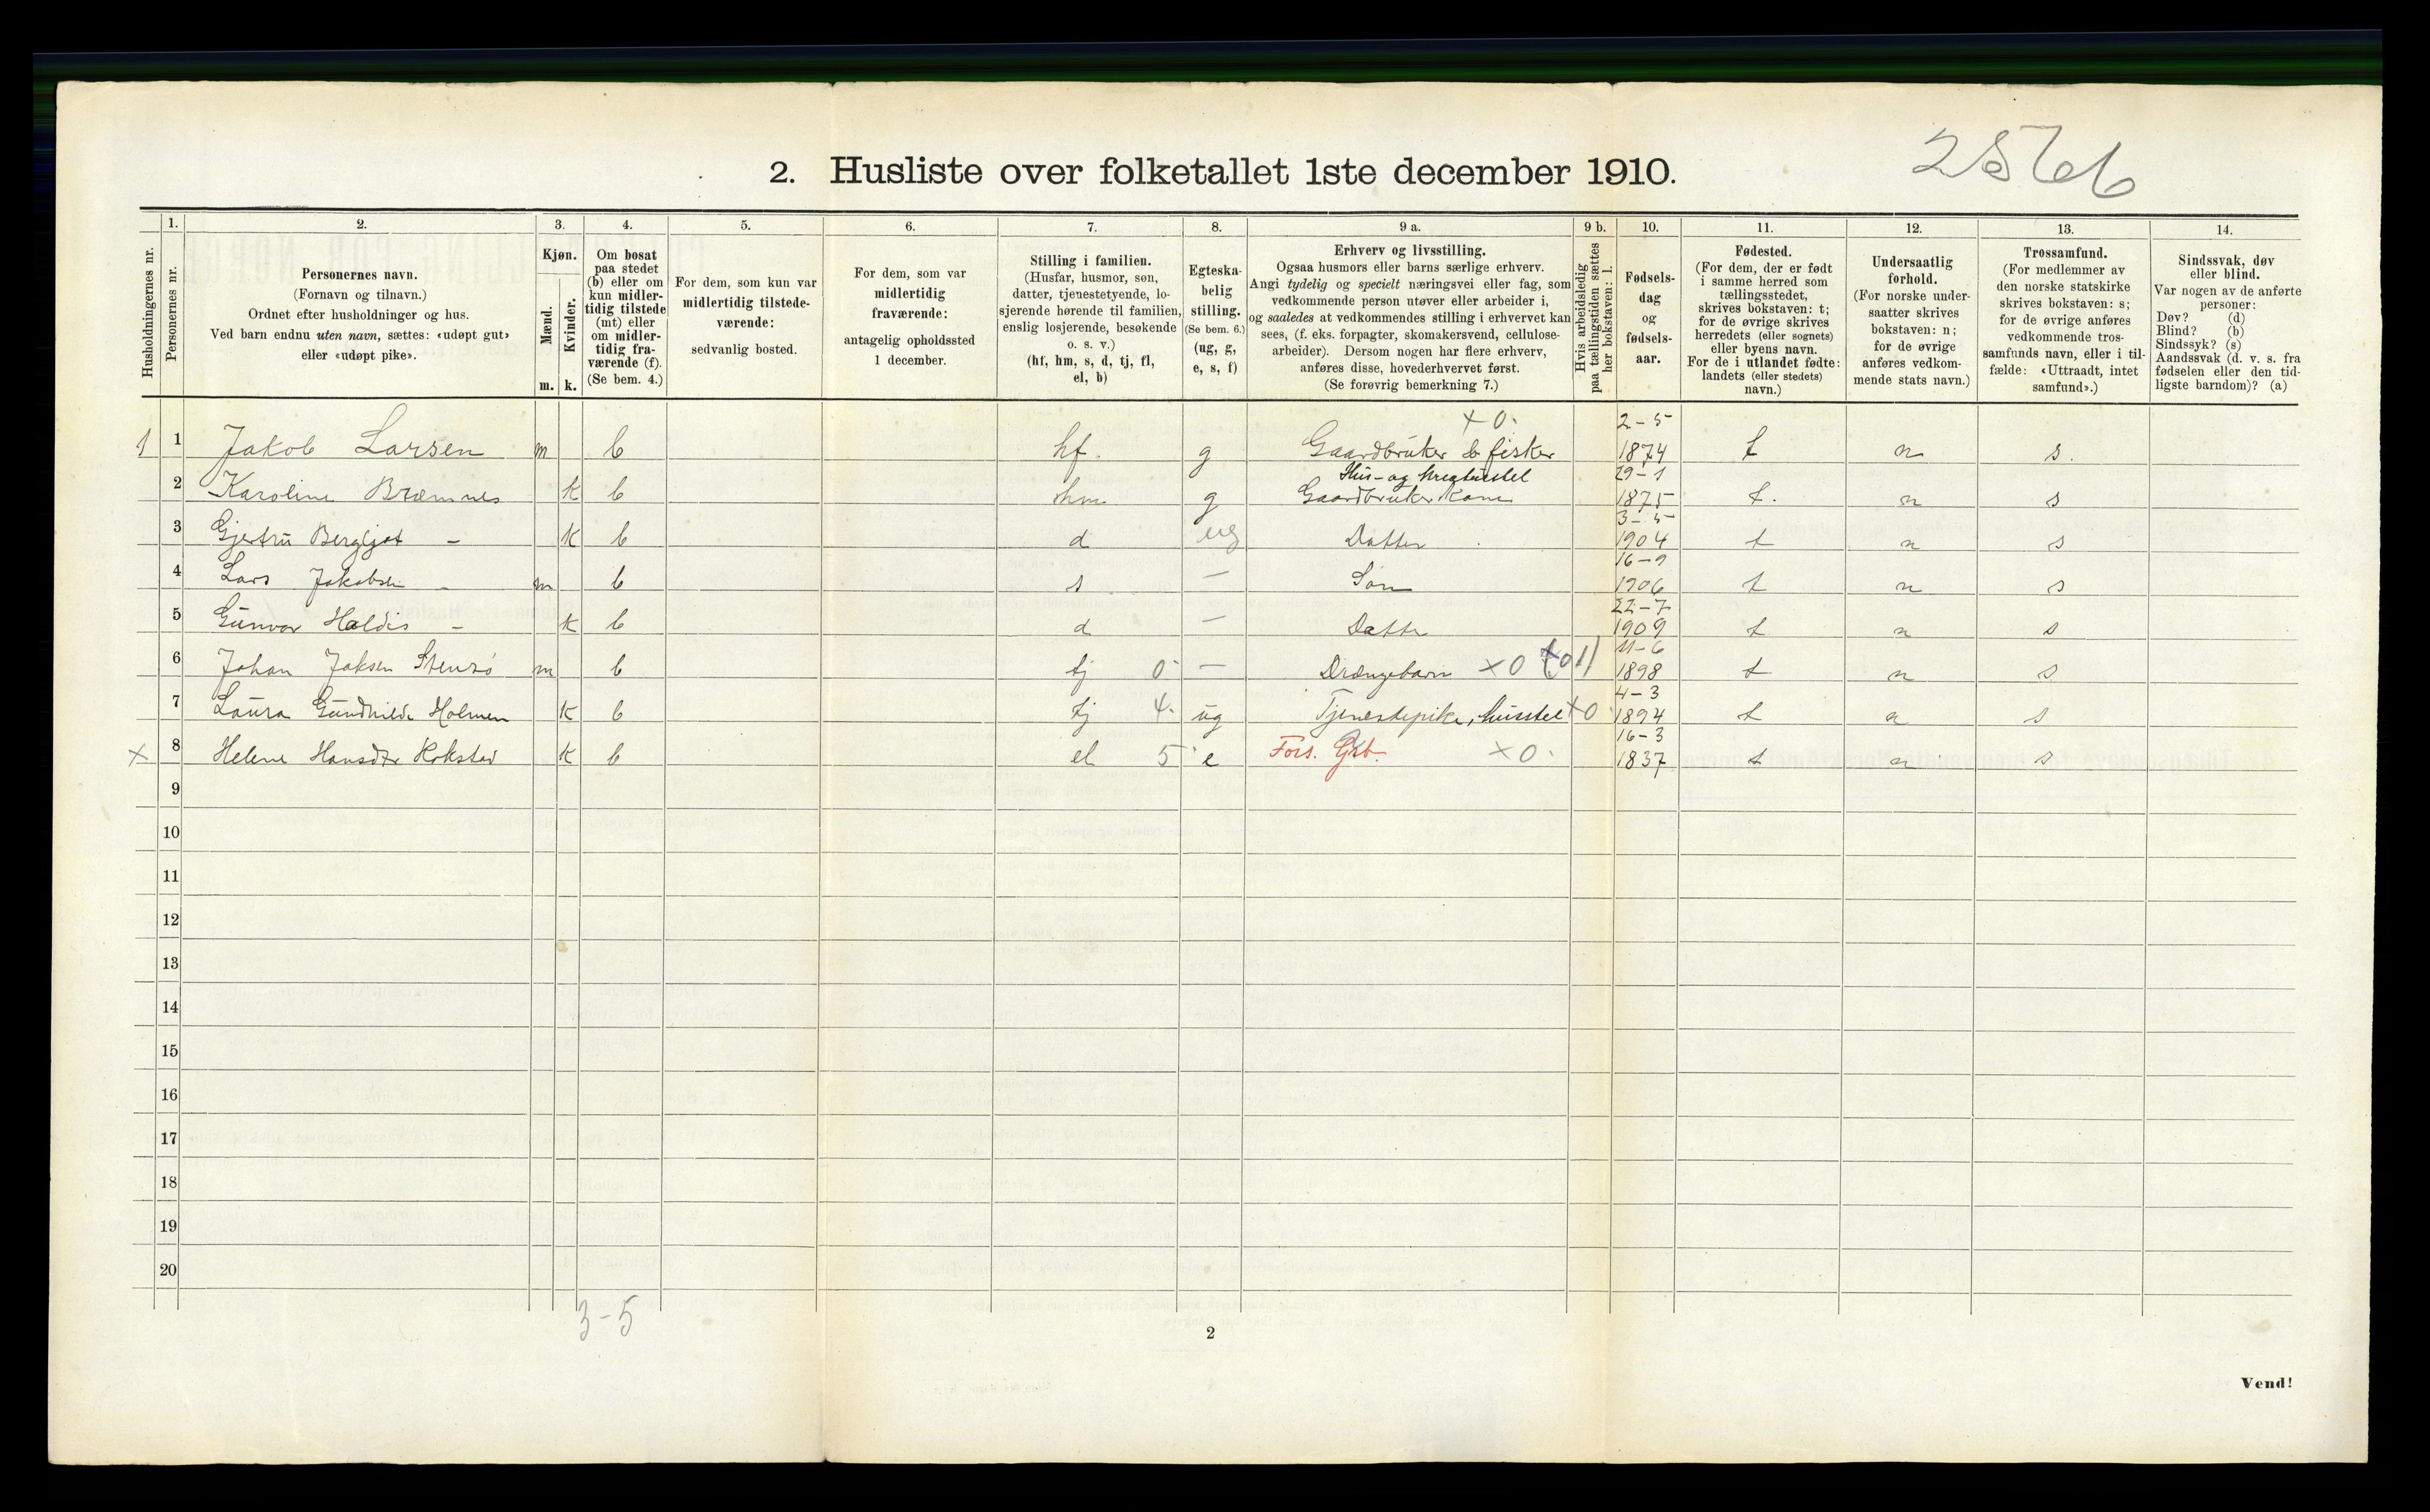 2. Husliste over folketallet 1ste december 1910.
Husholdningernes nr.
1. Personernes nr.
2. Personernes navn.
(Fornavn og tilnavn.)
Ordnet efter husholdninger og hus.
Ved barn endnu uten navn, sættes: «udøpt gut»
eller «udøpt pike».
3. Kjøn.
Mænd. m.
Kvinder. k.
4. Om bosat
paa stedet
(b) eller om
kun midler-
tidig tilstede
(mt) eller
om midler-
tidig fra-
værende (f).
(Se bem. 4.)
5. For dem, som kun var
midlertidig tilstede-
værende:
sedvanlig bosted.
6. For dem, som var
midlertidig
fraværende:
antagelig opholdssted
1 december.
7. Stilling i familien.
(Husfar, husmor, søn,
datter, tjenestetyende, lo-
sjerende hørende til familien,
enslig losjerende, besøkende
o. s. v.)
(hf, hm, s, d, tj, fl,
el, b)
8. Egteska-
belig
stilling.
(Se bem. 6.)
(ug, g,
e, s, f)
9 a. Erhverv og livsstilling.
Ogsaa husmors eller barns særlige erhverv.
Angi tydelig og specielt næringsvei eller fag, som
vedkommende person utøver eller arbeider i,
og saaledes at vedkommendes stilling i erhvervet kan
sees, (f. eks. forpagter, skomakersvend, cellulose-
arbeider). Dersom nogen har flere erhverv,
anføres disse, hovederhvervet først.
(Se forøvrig bemerkning 7.)
9 b. Hvis arbeidsledig
paa tællingstiden sættes
her bokstaven: l.
10. Fødsels-
dag
og
fødsels-
aar.
11. Fødested.
(For dem, der er født
i samme herred som
tællingsstedet,
skrives bokstaven: t;
for de øvrige skrives
herredets (eller sognets)
eller byens navn.
For de i utlandet fødte:
landets (eller stedets)
navn.)
12. Undersaatlig
forhold.
(For norske under-
saatter skrives
bokstaven: n;
for de øvrige
anføres vedkom-
mende stats navn.)
13. Trossamfund.
(For medlemmer av
den norske statskirke
skrives bokstaven: s;
for de øvrige anføres
vedkommende tros-
samfunds navn, eller i til-
fælde: «Uttraadt, intet
samfund».)
14. Sindssvak, døv
eller blind.
Var nogen av de anførte
personer:
Døv? (d)
Blind? (b)
Sindssyk? (s)
Aandssvak (d. v. s. fra
fødselen eller den tid-
ligste barndom)? (a)
1 1 Jakob Larsen m b hf. g Gaardbruker & fisker x 0. 2-5 1874 t n s.
2 Karoline Bræmnes k b hm g Hus- og kreaturstel Gaardbruker kone 29-1 1875 t. n s
3 Gjertru Bergljot – k b d ug Datter 3-5 1904 t n s
4 Lars Jakobsen – m b s — Søn 16-9 1906 t n s
5 Gunvor Haldis – k b d — Datter 22-7 1909 t n s
6 Johan Stensø m b tj 0 — x 0 11-6 1898 t n s
7 Laura Gundhilde Holmen k b tj 4. ug Tjenestepike, husstel x 0 4-3 1894 t n s
x 8 Helene Hansdtr Kokstad k b el 5 e Fors. Gkb. x 0. 16-3 1837 t n s
9
10
11
12
13
14
15
16
17
18
19
20
3-5
2
Vend!